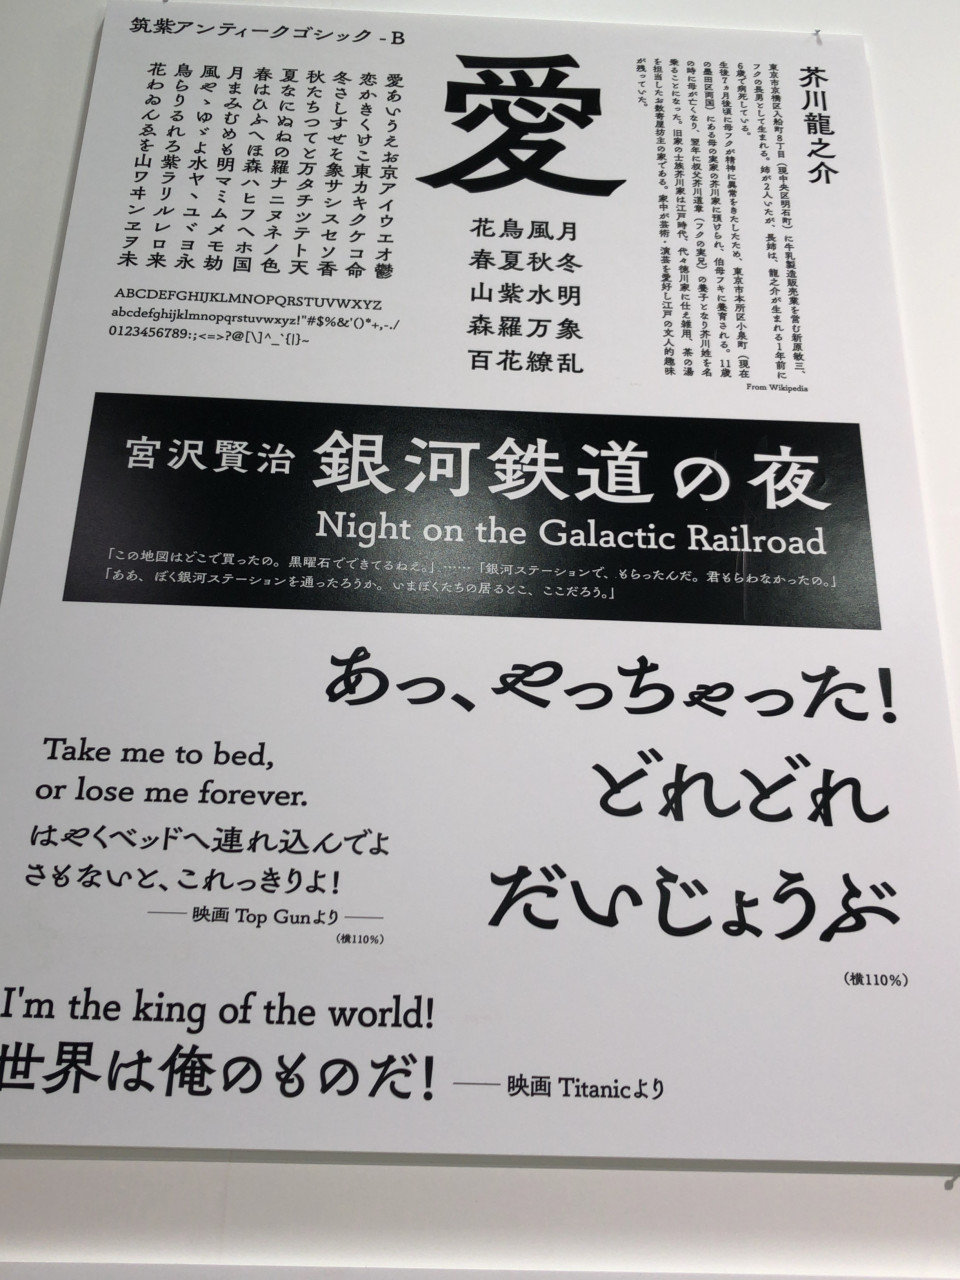 筑紫アンティークゴシック - B
愛あいうえお京アイウエオ鬱
恋かきくけこ東カキクケコ命
冬さしすせそ象サシスセソ香
秋たちつてと万タチツテト天
夏なにぬねの羅ナニヌネノ色
春はひふへほ森ハヒフヘホ国
月まみむめも明マミムメモ劫
風やゝゆゞよ水ヤヽユヾヨ永
鳥らりるれろ紫ラリルレロ来
花わゐんゑを山ワヰンヱヲ未
ABCDEFGHIJKLMNOPQRSTUVWXYZ
abcdefghijklmnopqrstuvwxyz!"#$%&'()*+,-./
0123456789:;<=>?@[\]^_`{|}~
愛
花鳥風月
春夏秋冬
山紫水明
森羅万象
百花繚乱
芥川龍之介
東京市京橋区入船町8丁目（現中央区明石町）に牛乳製造販売業を営む新原敏三、
フクの長男として生まれる。姉が2人いたが、長姉は、龍之介が生まれる1年前に
6歳で病死している。
生後7ヵ月後頃に母フクが精神に異常をきたしたため、東京市本所区小泉町（現在
の墨田区両国）にある母の実家の芥川家に預けられ、伯母フキに養育される。11歳
の時に母が亡くなり、翌年に叔父芥川道章（フクの実兄）の養子となり芥川姓を名
乗ることになった。旧家の士族芥川家は江戸時代、代々徳川家に仕え雑用、茶の湯
を担当したお数寄屋坊主の家である。家中が芸術・演芸を愛好し江戸の文人的趣味
が残っていた。
From Wikipedia
宮沢賢治 銀河鉄道の夜
Night on the Galactic Railroad
「この地図はどこで買ったの。黒曜石でできてるねえ。」……「銀河ステーションで、もらったんだ。君もらわなかったの。」
「ああ、ぼく銀河ステーションを通ったろうか。いまぼくたちの居るとこ、ここだろう。」
あっ、やっちゃった!
どれどれ
だいじょうぶ
（横110%）
Take me to bed,
or lose me forever.
はやくベッドへ連れ込んでよ
さもないと、これっきりよ!
── 映画 Top Gunより ──
（横110%）
I'm the king of the world!
世界は俺のものだ! ── 映画 Titanicより